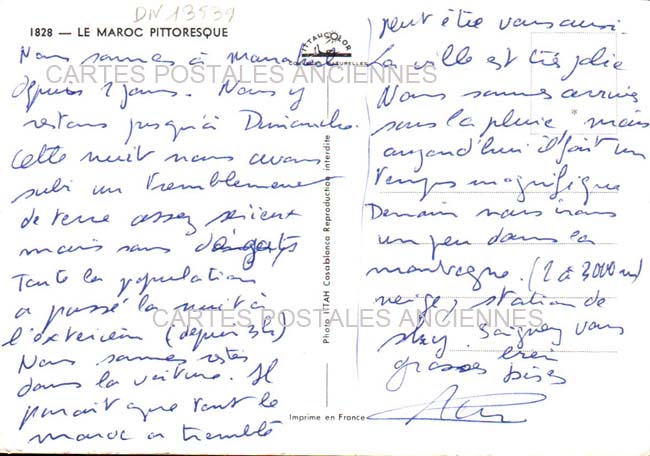 DIV 13539
1828 — LE MAROC PITTORESQUE
ITTAHCOLOR
Nous sommes à Marrakech
depuis 2 jours. Nous y
restons jusqu'à Dimanche.
Cette nuit nous avons
subi un tremblement
de terre assez sérieux
mais sans dégats
Toute la population
a passé la nuit à
l'extérieur (depuis 3h)
Nous sommes restés
dans la voiture. Il
parait que tout le
Maroc a tremblé
peut être vous aussi.
La ville est très jolie
Nous sommes arrivés
sous la pluie mais
aujourd'hui il fait un
temps magnifique
Demain nous irons
un peu dans la
montagne. (2 à 3000 m)
neige, station de
sky. Soignez vous
bien
grosses bises
Photo ITTAH Casablanca Reproduction interdite
Imprime en France
CARTES POSTALES ANCIENNES
CARTES POSTALES ANCIENNES